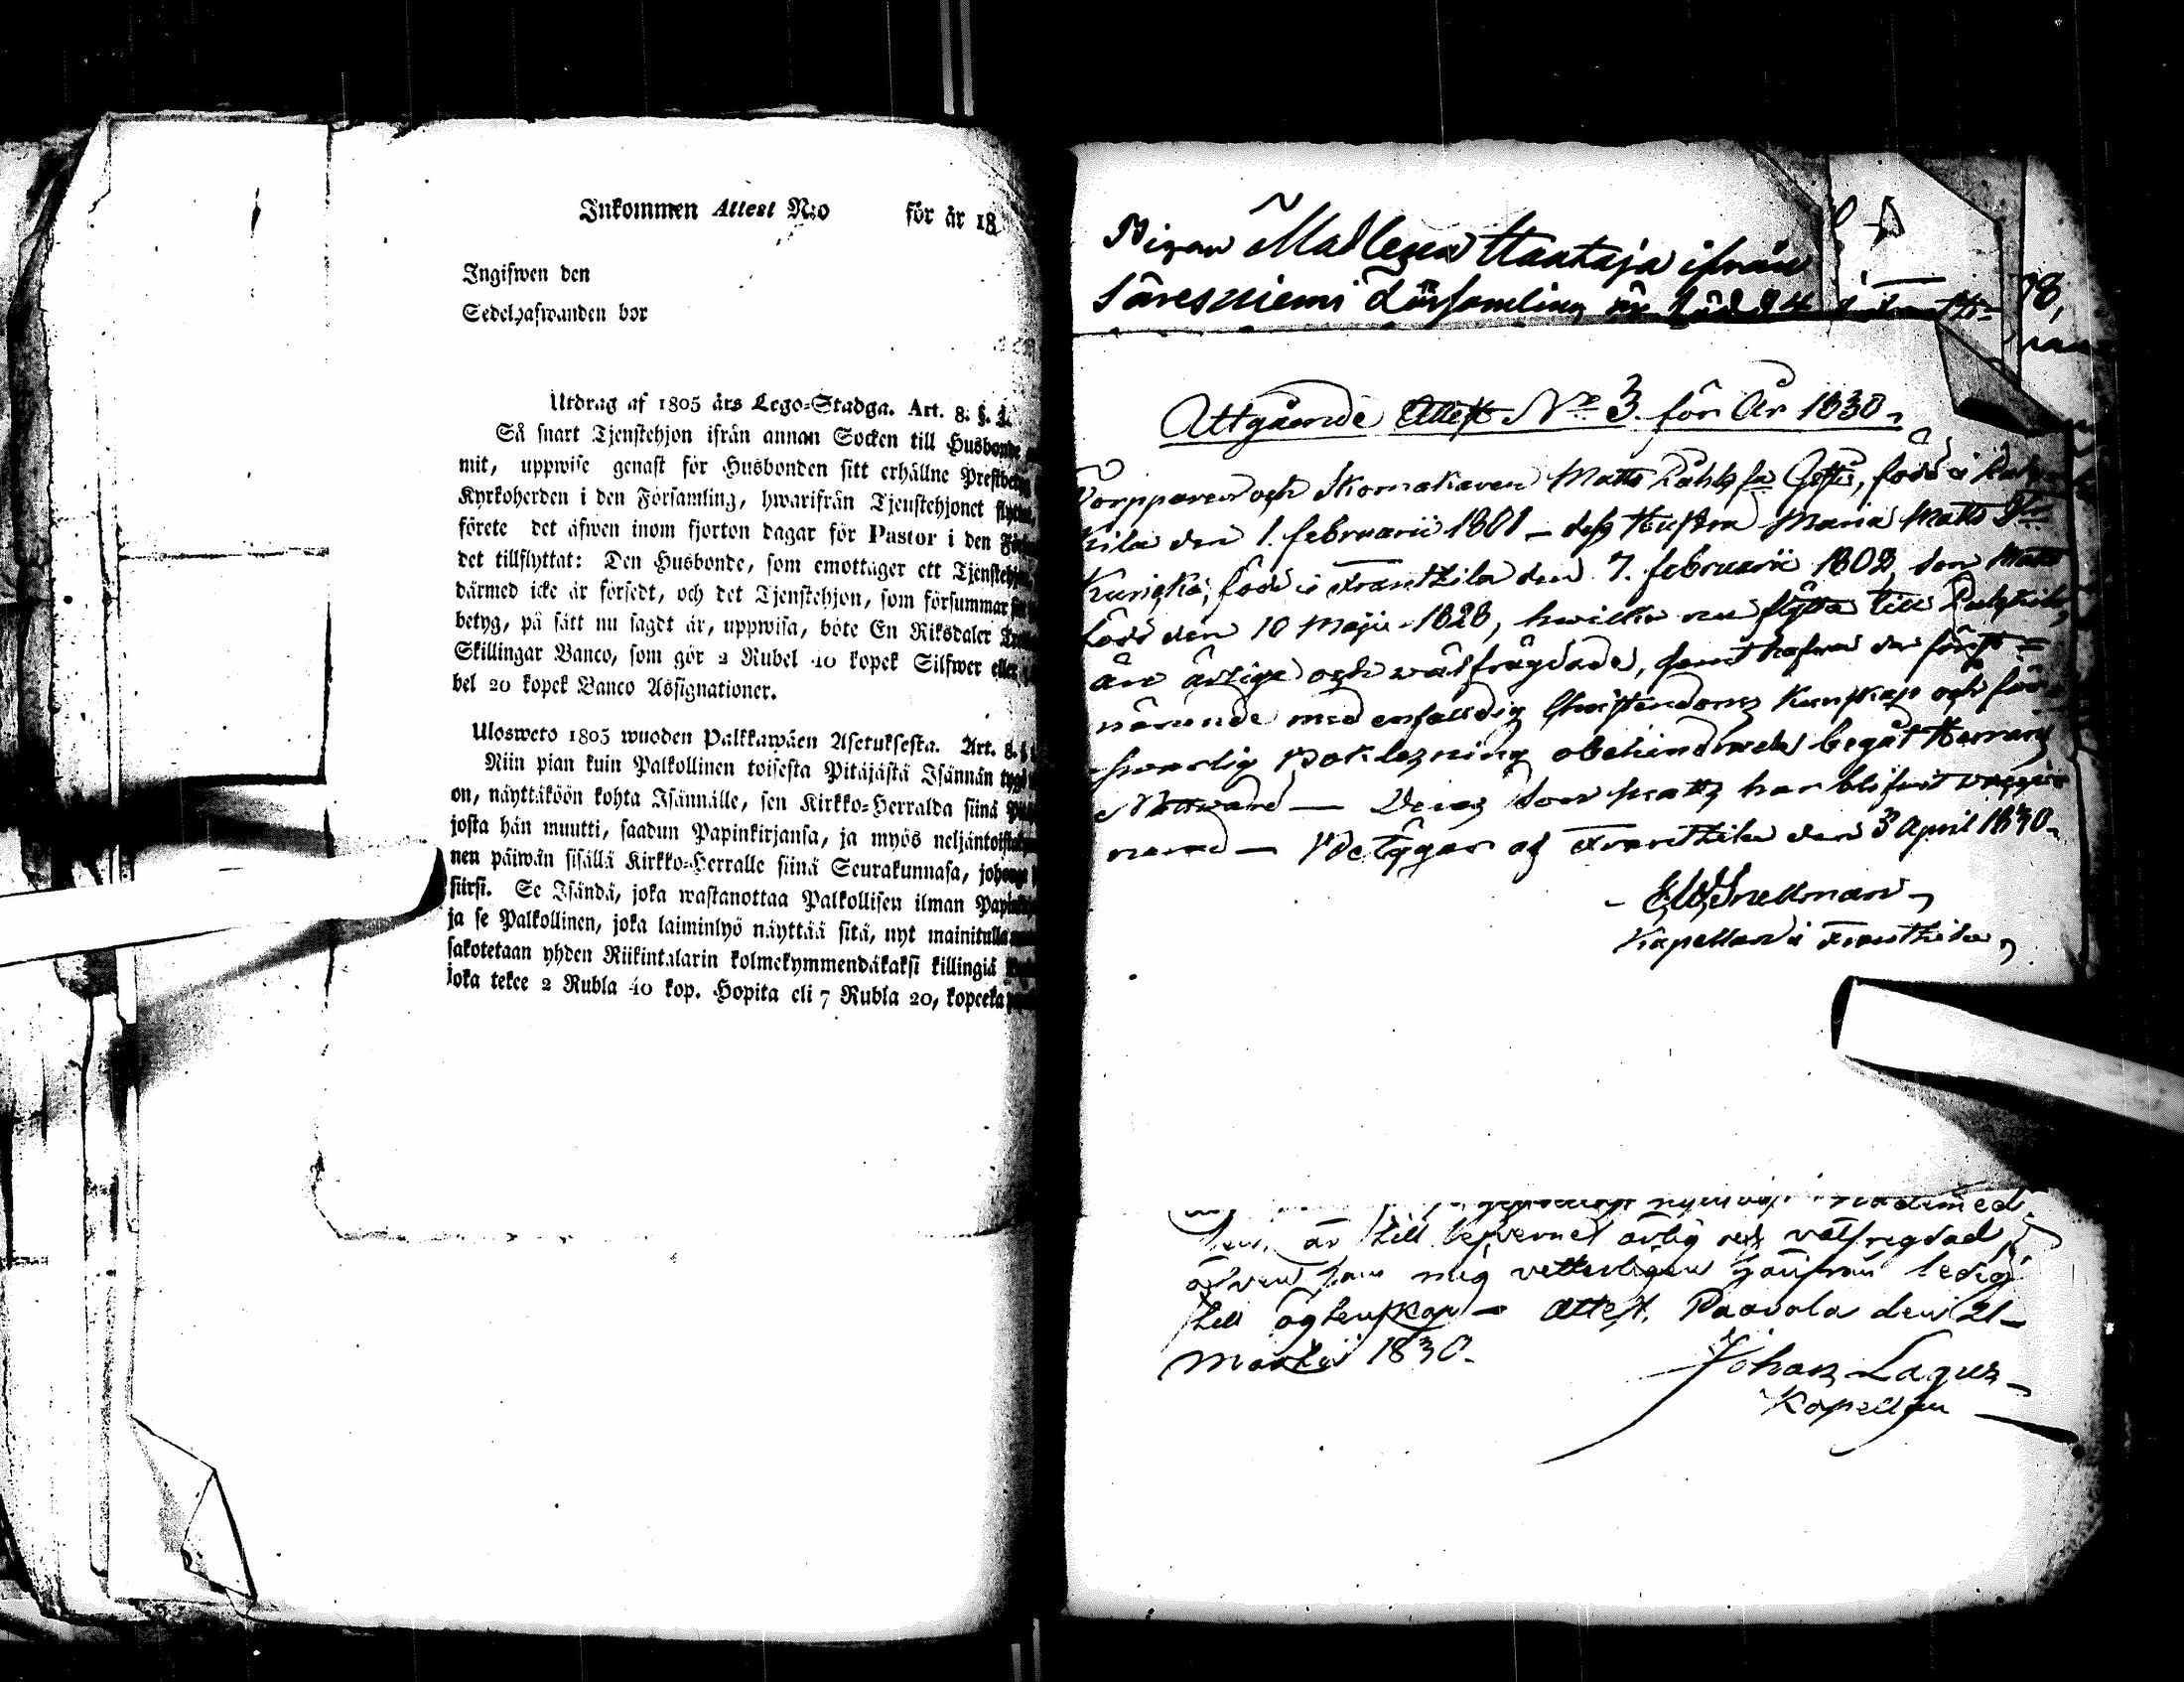 Inkommen Attest N:o för år 18
Ingifwen den
Sedelhafwanden bor
Utdrag af 1805 års Lego-Stadga. Art. 8. §. 4.
Så snart Tjenstehjon ifrån annan Socken till Husbonde
mit, uppwise genast för Husbonden sitt erhållne Prestbetyg
Kyrkoherden i den Församling, hwarifrån Tjenstehjonet
förete det äfwen inom fjorton dagar för Pastor i den
det tillflyttat: Den Husbonde, som emottager ett Tjenstehjon
därmed icke är försedt, och det Tjenstehjon, som försummar
betyg, på sätt nu sagdt är, uppwisa, böte En Riksdaler
Skillingar Banco, som gör 2 Rubel 40 kopek Silfwer eller
bel 20 kopek Banco Assignationer.
Ulosweto 1805 wuoden Palkkawäen Asetuksesta. Art. 8.
Niin pian kuin Palkollinen toisesta Pitäjästä Isännän tygö
on, näyttäköön kohta Isännälle, sen Kirkko-Herralda siinä
josta hän muutti, saadun Papinkirjansa, ja myös neljäntoista
nen päiwän sisällä Kirkko-Herralle siinä Seurakunnasa, johonga
siirsi. Se Isändä, joka wastanottaa Palkollisen ilman
ja se Palkollinen, joka laiminlyö näyttää sitä, nyt mainitulla
sakotetaan yhden Riikintalarin kolmekymmendäkaksi killingiä
joka tekee 2 Rubla 40 kop. Hopita eli 7 Rubla 20, kopeeka
Pigan Madlena Haataja ifrån
Säresniemi Församling är född
78,
Utgående Attest No 3 för År 1830.
Torpparen och Skomakaren Matts Gotts, född i
kila den 1. februarii 1801 – dess Hustru Maria Matts Dr
Kuricka, född i Frantsila den 7. februarii 1802, son Matts
född den 10 Maji 1828, hwilka nu flytta till Pulkkila,
äre ärlige och wälfrägdade, samt hafwa den först
närande med enfaldig Christendoms kunskap och för
swarlig Boklesning obehindrade begåt Herrans
Nattward — Deras Son Matts har blifwit waccine
rad — Betygar af Frantsila den 3 April 1830.
Snellman
Kapellan i Frantsila,
är till lefvernet ärlig och välfregdad,
äfven som mig vetterligen ledig
till ägtenskap – Attest. Paavola den 21
Martii 1830.
Johan Lagus
Kapellan